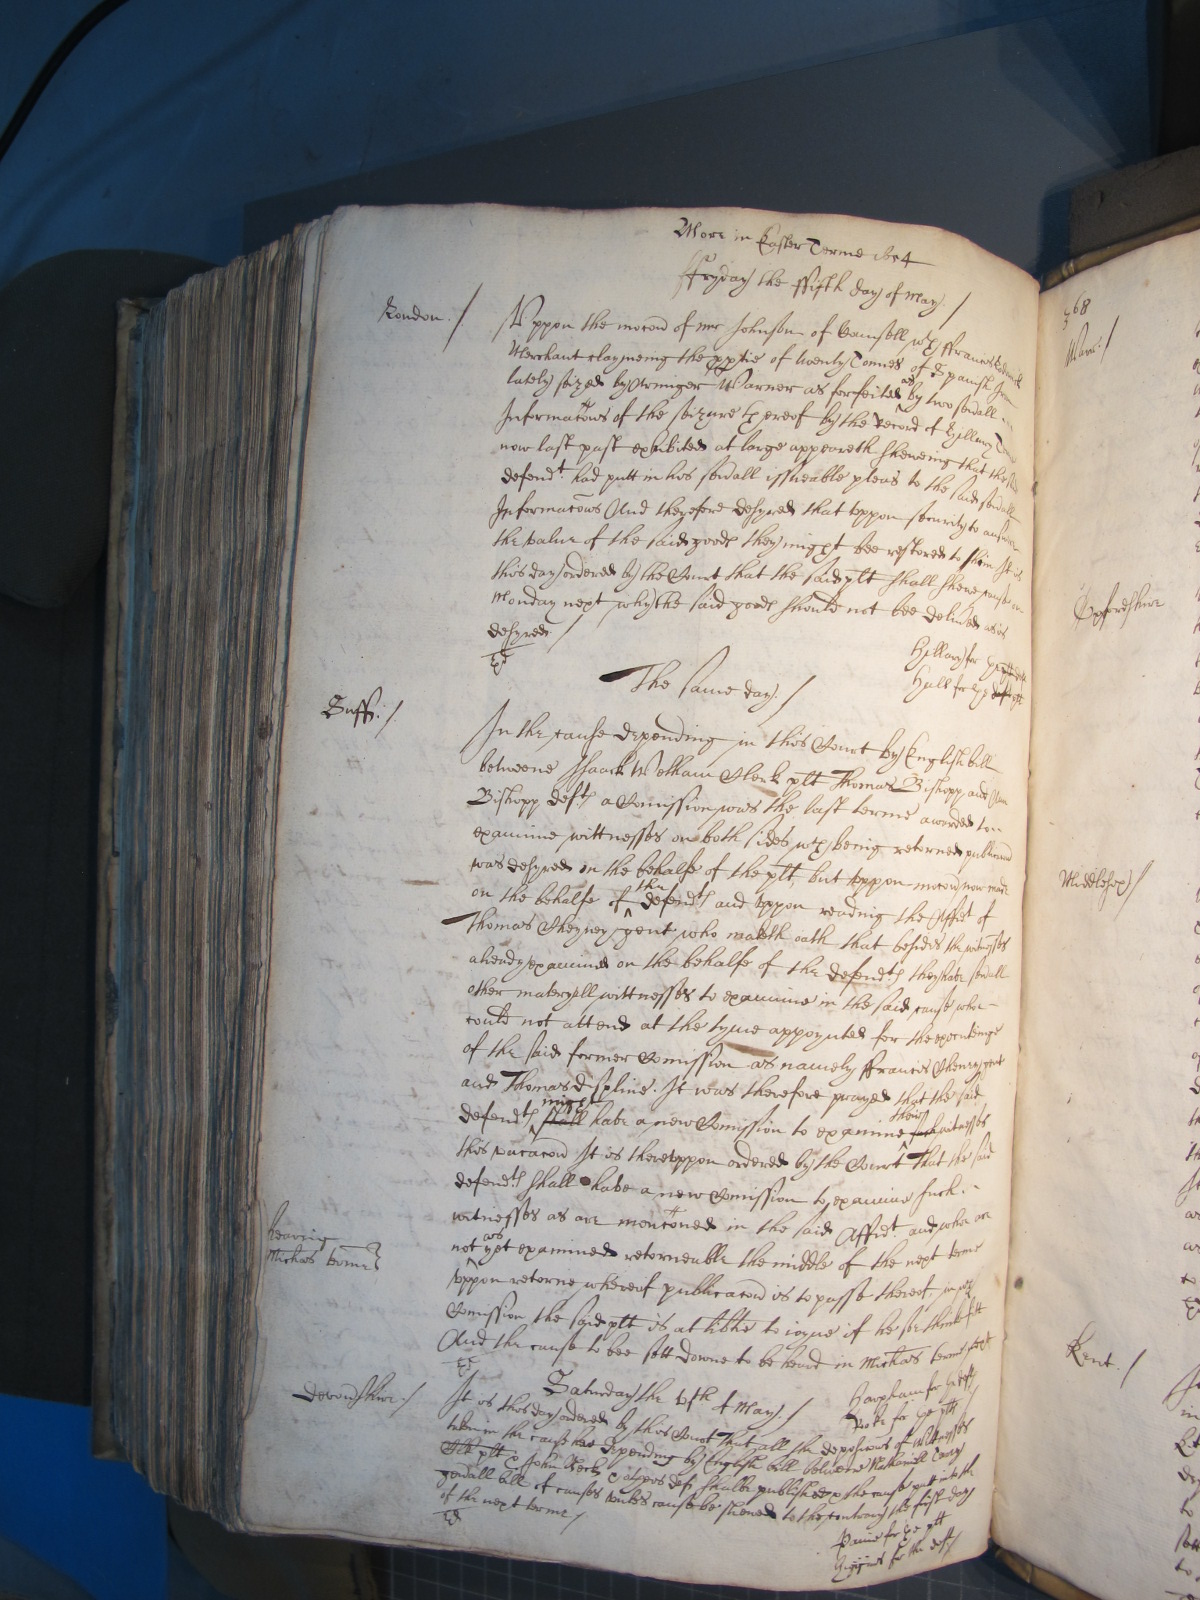 More in Easter Terme
ffryday the ffifth day of may. /
London. /
Vppon the mocon of mr Johnson of Counsell wth ffrancis
Merchant claymeing the of twenty Tonnes of Spanish Iron
lately seized by Armiger Warner as forfeited as by two seuall
Informacõns of the seizure thereof by the record of Hillary
now last past exhibited at large appeareth shewing that the said
defendt. had putt in his seuall issueable pleas to the said seuall
Informacõns And therefore desyred that vppon security to answer
the value of the said goods they might bee restored to him It is
this day ordered by the Court that the said plt shall shewe cause on
Monday next why the said goods should not bee deliued as is
desyred /
Hillary for
Hall for
The same day. /
Suff: /
In the cause depending in this Court by English bill
betweene Isaack Welham Clerk plt Thomas Bishopp and
Bishopp defts a Comission was the last terme awarded to
examine wittnesses on both sides wch being returned publicacon
was desyred in the behalfe of the plt, but vppon mocon now made
on the behalfe of the defendts and vppon reading the Affidt of
Thomas Cheyney gent who maketh oath that besides the witnesses
already examined on the behalfe of the defendts they haue seuall
other materyall wittnesses to examine in the said cause who
could not attend at the tyme appoynted for the executinge
of the said former Comission as namely ffrancis Cheney gent
and Thomas It was therefore prayed that the said
defendts might shall haue a new Comission to examine theis witnesses
this vacacon It is therevppon ordered by the Court That the said
defendts shall haue a new Comission to examine such
witnesses as are mencõned in the said Affidt. and who are
not as yet examined retorneable the middle of the next terme
hearing
Michas terme
vppon retorne whereof publicacon is to passe thereof, in wch
Comission the said plt is at libtie to ioyne if he soe thinke fitt
And the cause to bee sett downe to be heard in Michas terme next
for
for ye plt
Saturday the vjth of May. /
Devonshire. /
It is this day ordered by this Court That all the deposicons of wittnesses
taken in the cause depending by English bill betweene Nathaniell Cary
plt & John & others defts shalbe published & the cause putt into the
genall bill of causes vnles cause be shewed to the contrary the first day
of the next terme /
for ye plt
for the defts /
368
Warr: /
Oxfordshire
Middlesex /
Kent. /